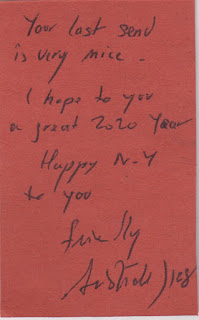 Your last send
is very nice.
I hope to you
a great 2020 Year
Happy N-Y
to you
friendly